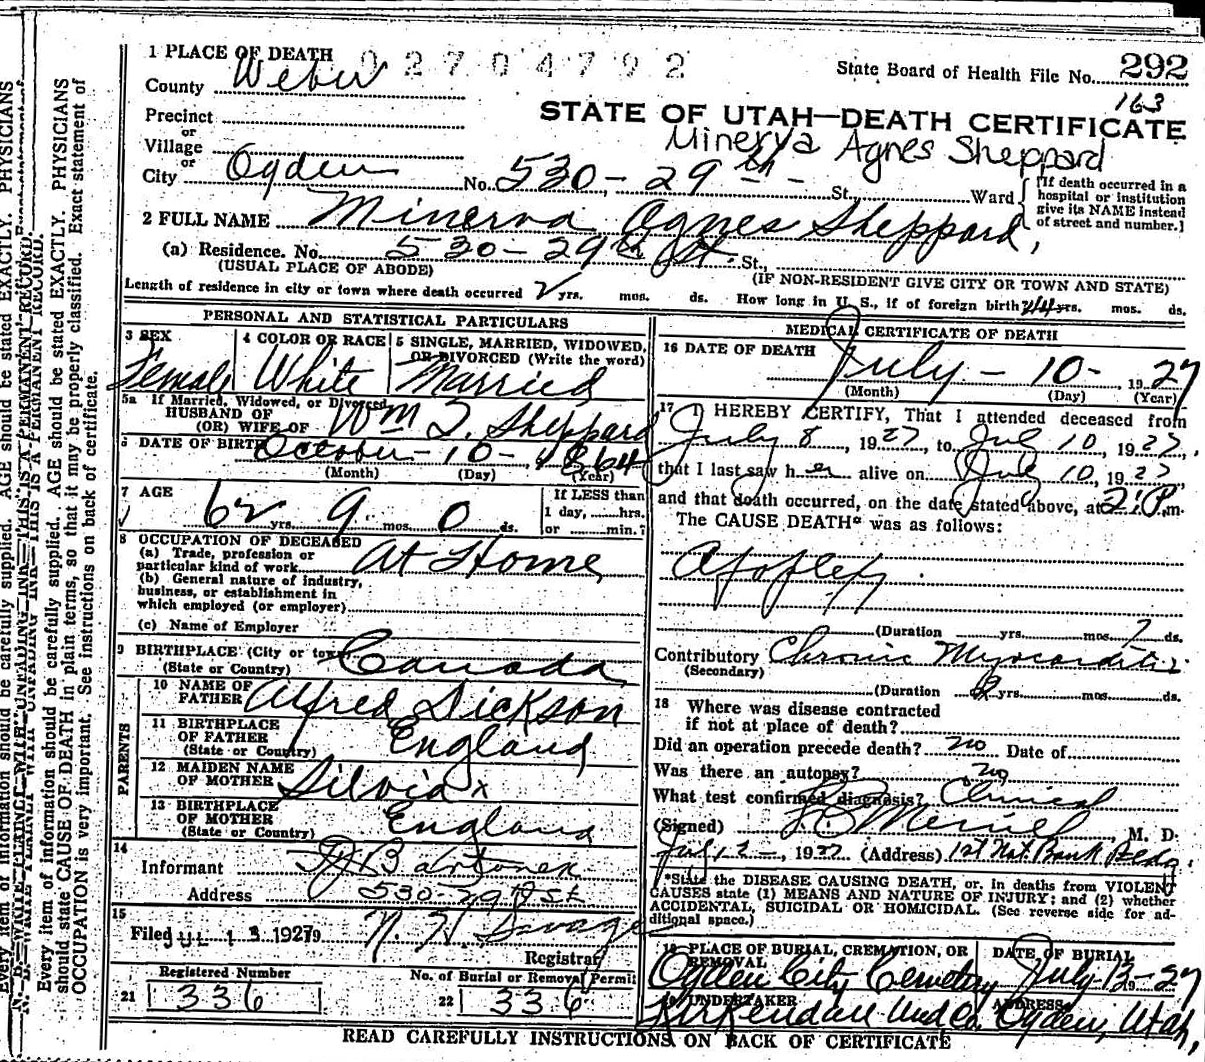 1 PLACE OF DEATH 02704792
State Board of Health File No. 292
163
County Weber
STATE OF UTAH—DEATH CERTIFICATE
Precinct
or
Village
or
Minerva Agnes Sheppard
City Ogden No. 530-29th - St. Ward
[If death occurred in a hospital or institution give its NAME instead of street and number.]
2 FULL NAME Minerva Agnes Sheppard,
(a) Residence. No. 530-29th St. St.,
(USUAL PLACE OF ABODE) (IF NON-RESIDENT GIVE CITY OR TOWN AND STATE)
Length of residence in city or town where death occurred 2 yrs. mos. ds. How long in U. S., if of foreign birth? 44 yrs. mos. ds.
PERSONAL AND STATISTICAL PARTICULARS
3 SEX Female
4 COLOR OR RACE White
5 SINGLE, MARRIED, WIDOWED, OR DIVORCED (Write the word) Married
5a If Married, Widowed, or Divorced
HUSBAND OF
(OR) WIFE OF Wm T. Sheppard
6 DATE OF BIRTH October-10-, 1864
(Month) (Day) (Year)
7 AGE 62 yrs. 9 mos. 0 ds.
If LESS than
1 day, hrs.
or min.?
8 OCCUPATION OF DECEASED
(a) Trade, profession or
particular kind of work At Home
(b) General nature of industry,
business, or establishment in
which employed (or employer)
(c) Name of Employer
9 BIRTHPLACE (City or town)
(State or Country) Canada
PARENTS
10 NAME OF
FATHER Alfred Dickson
11 BIRTHPLACE
OF FATHER
(State or Country) England
12 MAIDEN NAME
OF MOTHER Silvia x
13 BIRTHPLACE
OF MOTHER
(State or Country) England
14
Informant
Address 530-29th St
15
Filed JUL 13 1927
Registrar
Registered Number
21 336
No. of Burial or Removal Permit
22 336
MEDICAL CERTIFICATE OF DEATH
16 DATE OF DEATH July - 10 - 1927
(Month) (Day) (Year)
17 I HEREBY CERTIFY, That I attended deceased from
July 8, 1927, to July 10, 1927,
that I last saw her alive on July 10, 1927
and that death occurred, on the date stated above, at 2 P.m.
The CAUSE DEATH* was as follows:
Apoplexy.
(Duration yrs. mos. ds.
Contributory Chronic Myocarditis
(Secondary)
(Duration yrs. mos. ds.
18 Where was disease contracted
if not at place of death?
Did an operation precede death? no Date of
Was there an autopsy? no
What test confirmed diagnosis? Clinical
(Signed) Merrill, M. D.
July 12, 1927 (Address) 1st Nat Bank Bldg.
*State the DISEASE CAUSING DEATH, or, in deaths from VIOLENT
CAUSES state (1) MEANS AND NATURE OF INJURY; and (2) whether
ACCIDENTAL, SUICIDAL OR HOMICIDAL. (See reverse side for ad-
ditional space.)
19 PLACE OF BURIAL, CREMATION, OR REMOVAL
Ogden City Cemetery
DATE OF BURIAL
July-12-27
UNDERTAKER
Kirkendall Und Co.
ADDRESS
Ogden, Utah,
READ CAREFULLY INSTRUCTIONS ON BACK OF CERTIFICATE
Every item of information should be carefully supplied. AGE should be stated EXACTLY. PHYSICIANS
should state CAUSE OF DEATH in plain terms, so that it may be properly classified. Exact statement of
OCCUPATION is very important. See instructions on back of certificate.